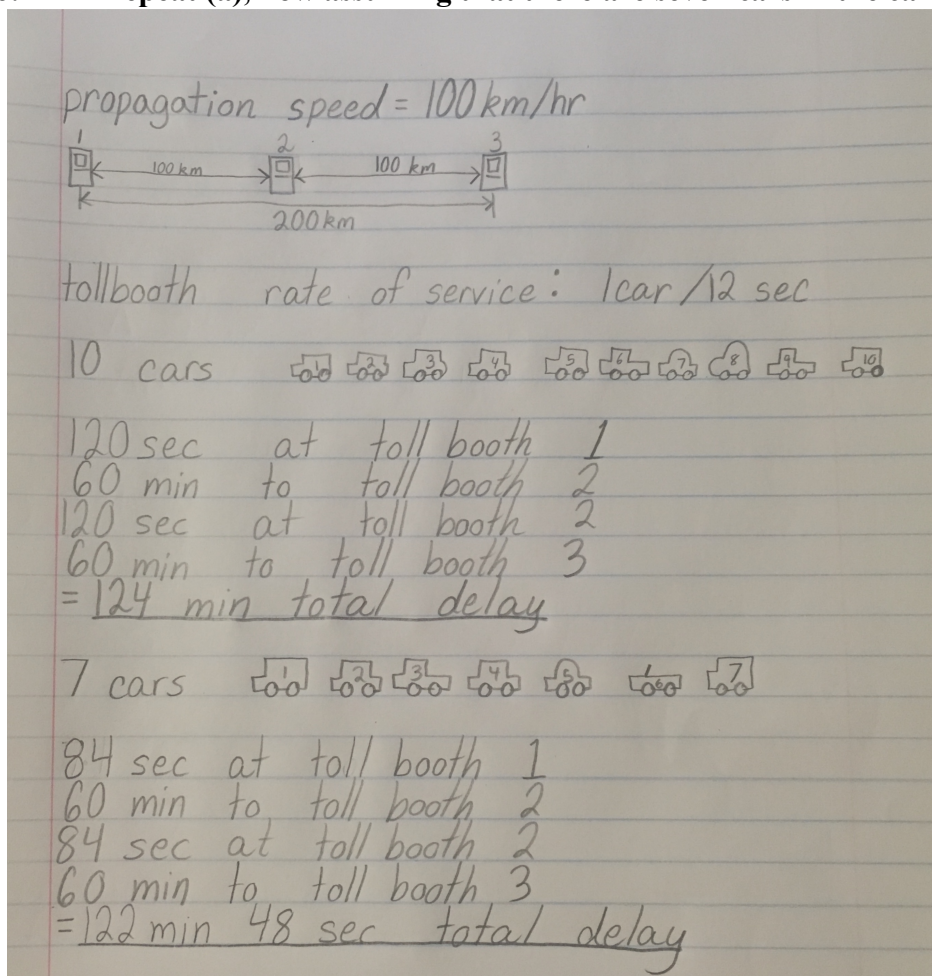 Repeat (a), now assuming that there are seven cars in the
propagation speed = 100 km/hr
1 2 3
100 km 100 km
200 km
tollbooth rate of service: 1 car / 12 sec
10 cars 1 2 3 4 5 6 7 8 9 10
120 sec at toll booth 1
60 min to toll booth 2
120 sec at toll booth 2
60 min to toll booth 3
= 124 min total delay
7 cars 1 2 3 4 5 6 7
84 sec at toll booth 1
60 min to toll booth 2
84 sec at toll booth 2
60 min to toll booth 3
= 122 min 48 sec total delay